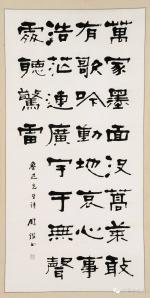 萬家墨面没蒿萊敢
有歌吟動地哀心事
浩茫連廣宇于無聲
處聽驚雷
魯迅先生詩